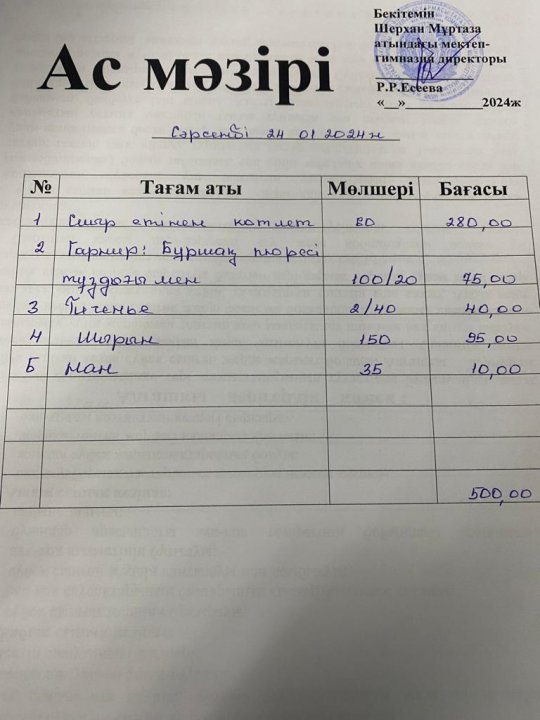 Бекітемін
Шерхан Мұртаза
атындағы мектеп-
гимназия директоры
Р.Р.Есеева
«__»____________2024ж
Ас мәзірі
Сәрсенбі 24 01 2024ж
№ Тағам аты Мөлшері Бағасы
1 Сиыр етінен котлет 80 280,00
2 Гарнир: Бұршақ пюресі
тұздығымен 100/20 75,00
3 Печенье 2/40 40,00
4 Шырын 150 95,00
5 Нан 35 10,00
500,00